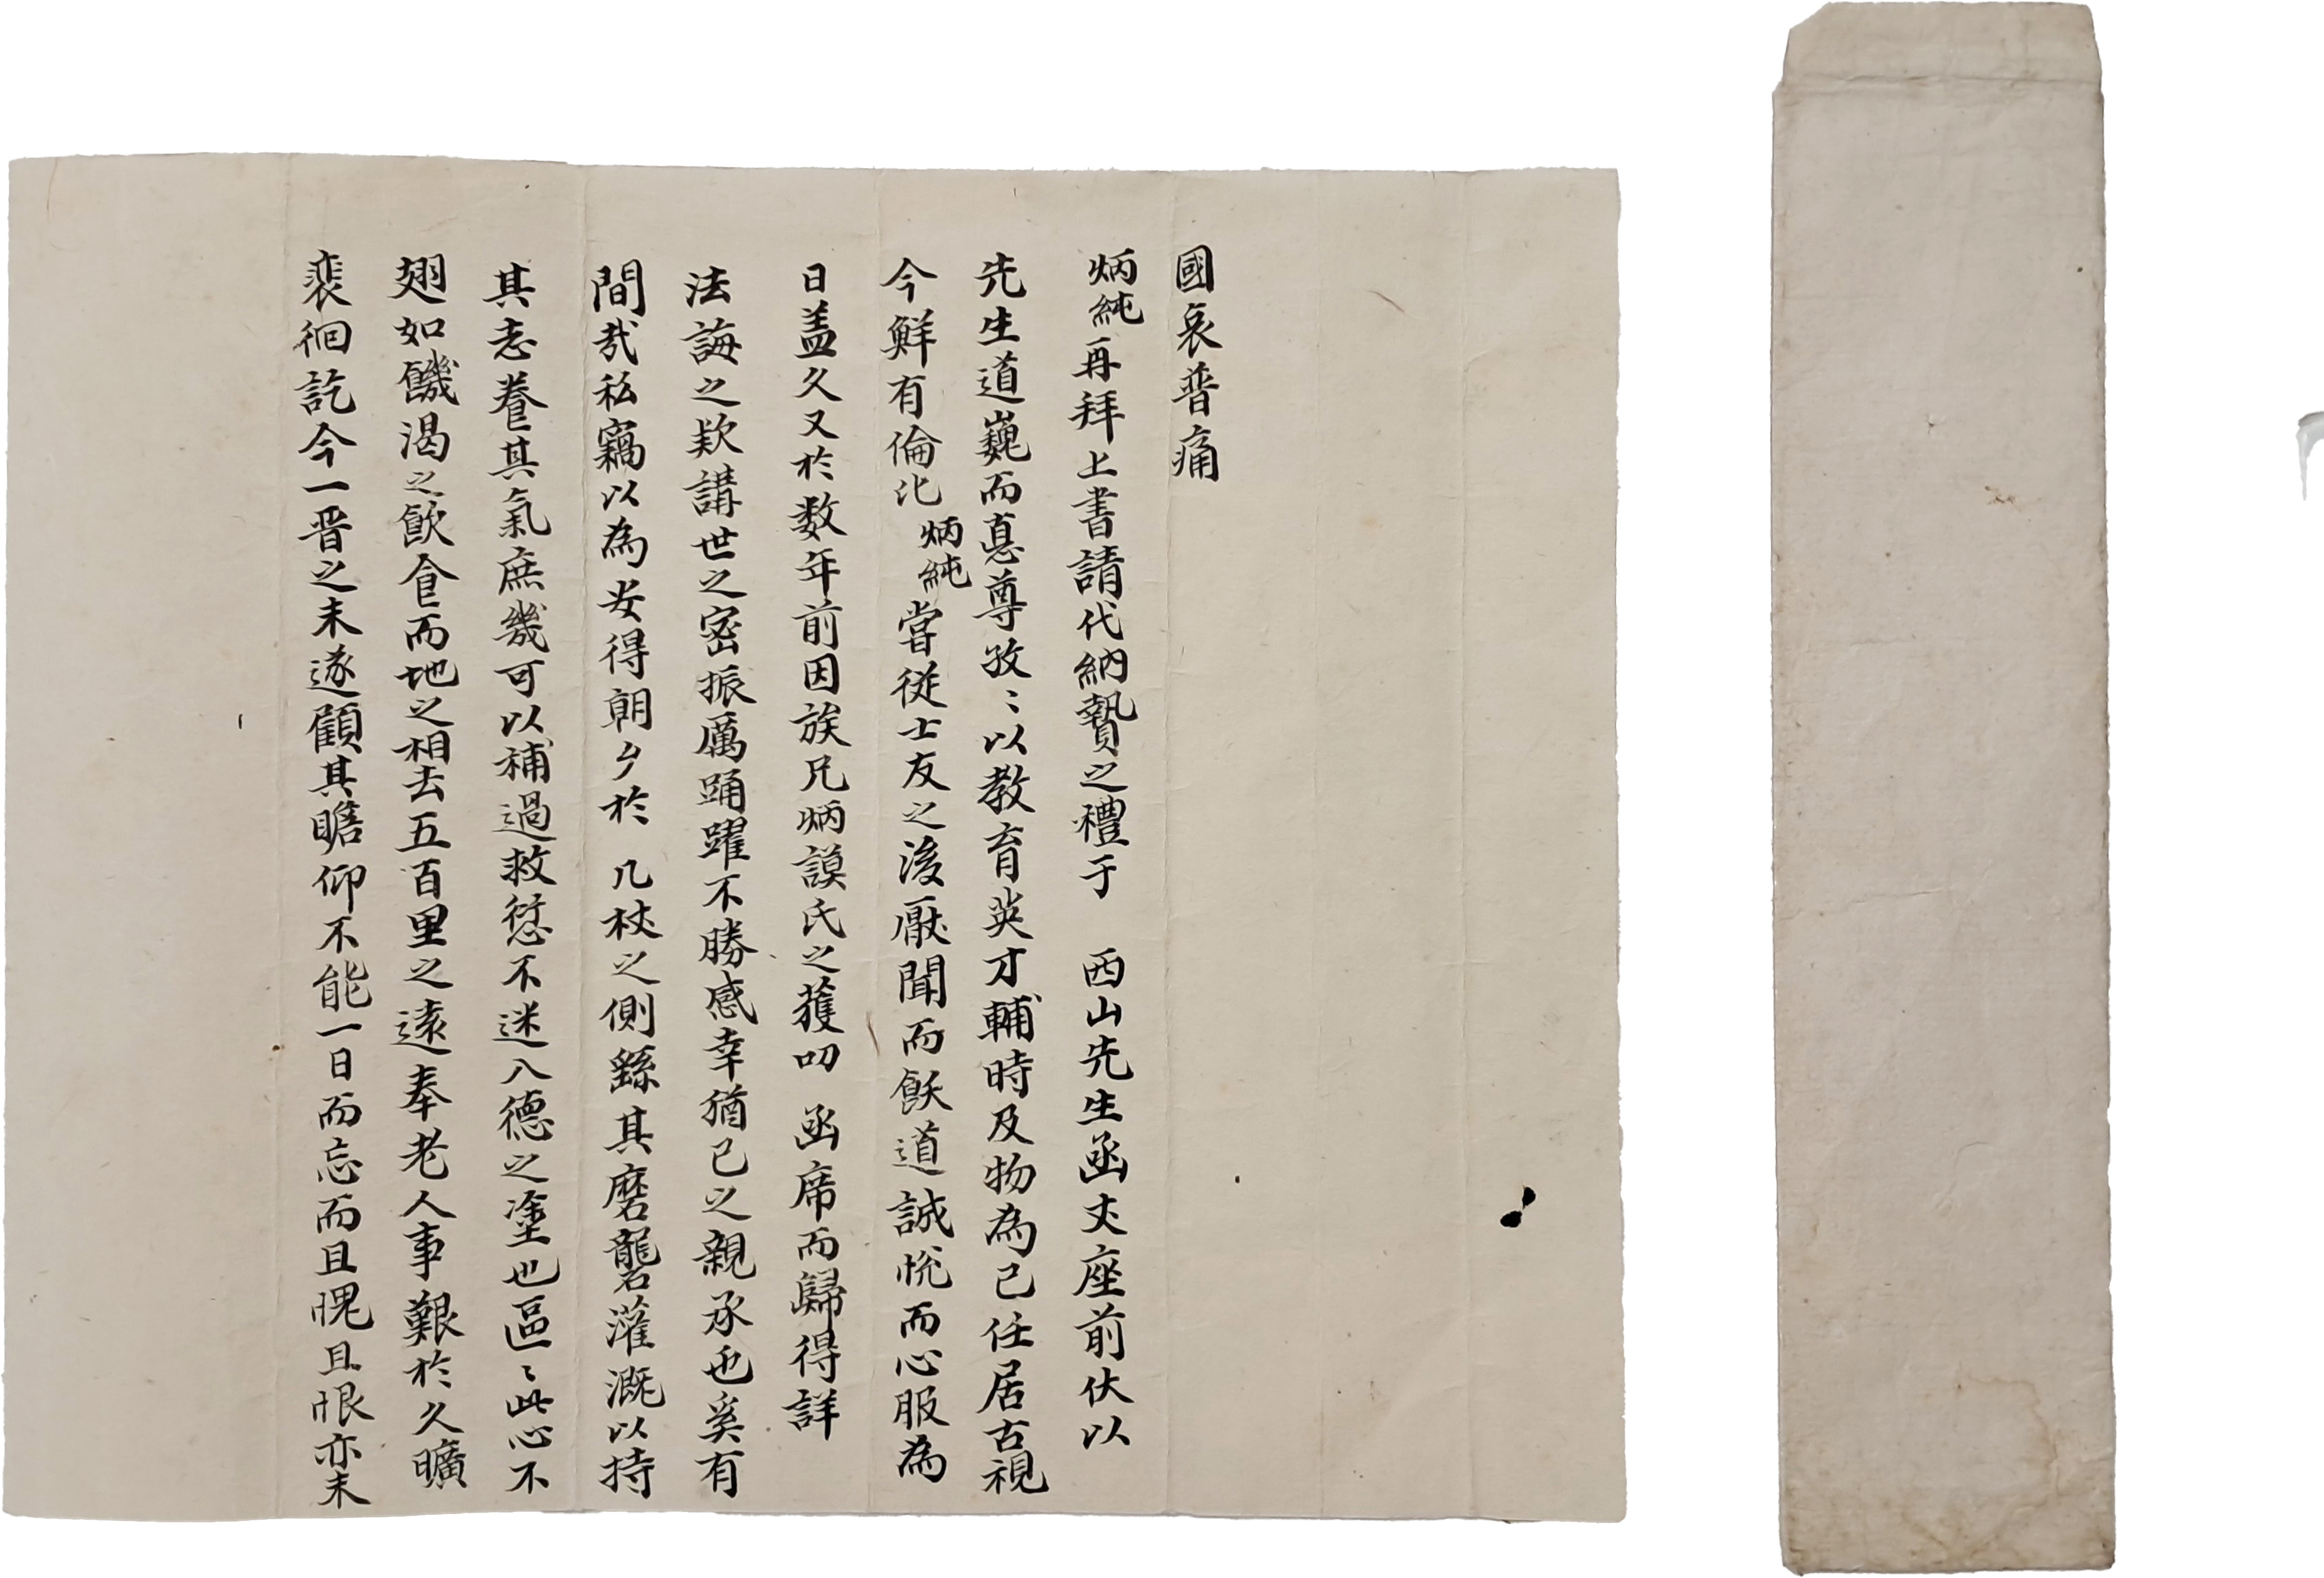 國哀普痛
炳純再拜上書請代納贄之禮于 西山先生函丈座前伏以
先生道巍而悳尊孜〻以教育英才輔時及物為己任居古視
今鮮有倫比炳純嘗從士友之後厭聞而飫道誠悅而心服為
日盖久又於数年前因族兄炳謨氏之獲叨 函席而歸得詳
法誨之欵講世之密振厲踊躍不勝感幸猶己之親承也奚有
間㢤私竊以為安得朝夕於 几杖之側繇其磨礲灌溉以持
其志養其氣庶幾可以補過救愆不迷入德之塗也區〻此心不
翅如饑渴之飮食而地之相去五百里之遠奉老人事艱於久曠
裴徊訖今一晋之未遂顧其瞻仰不能一日而忘而且愧且恨亦末